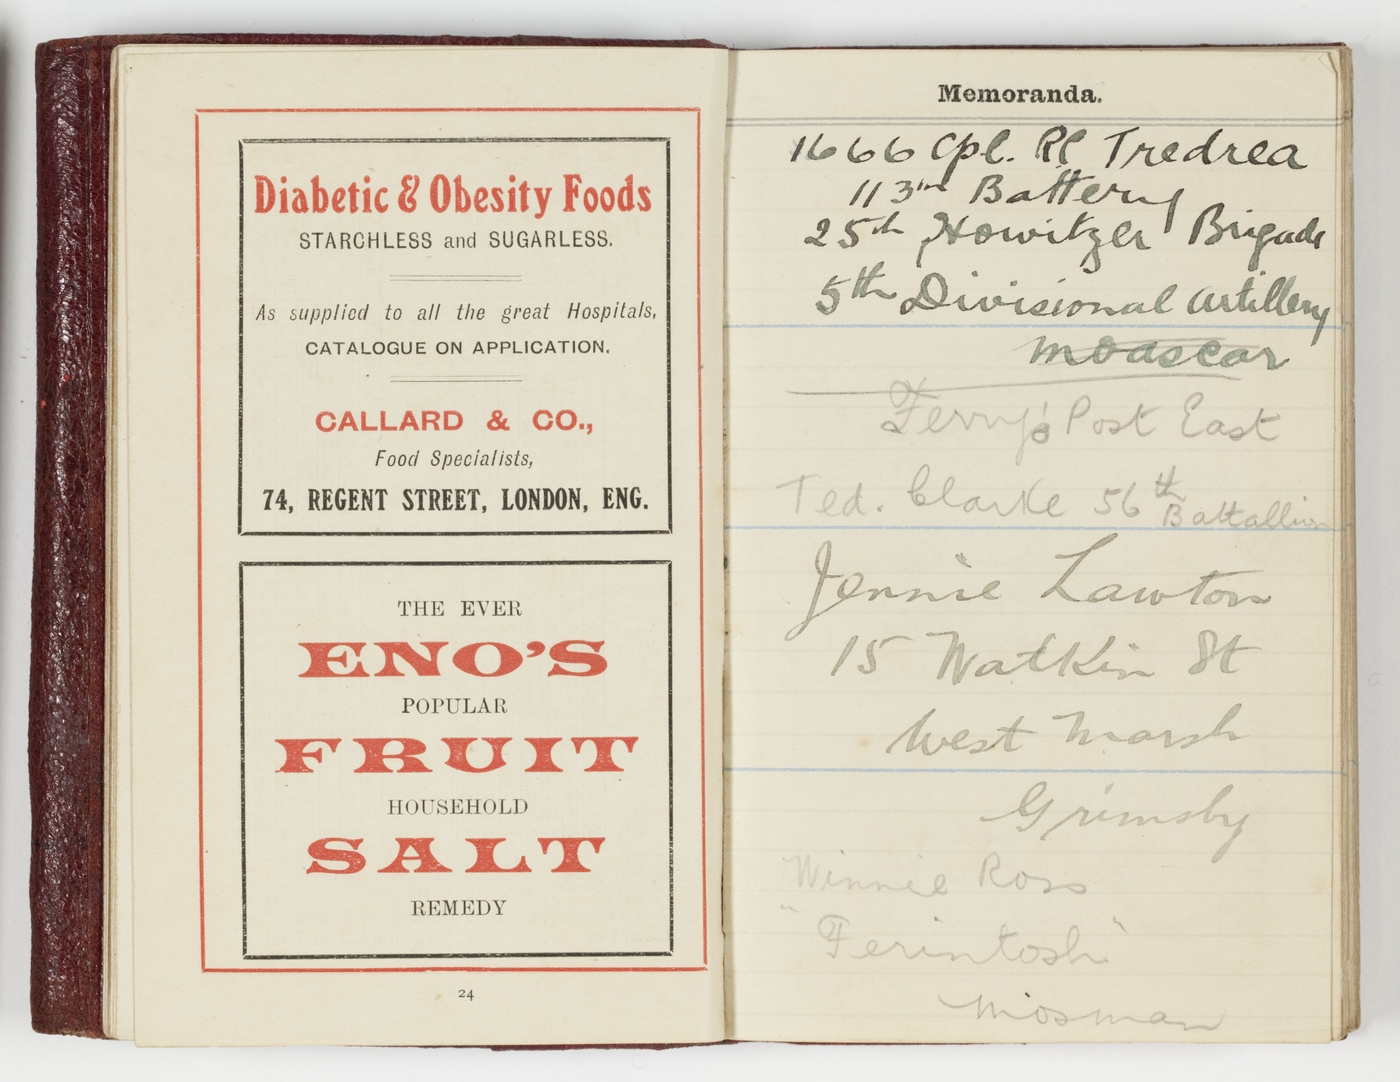 Diabetic & Obesity Foods
STARCHLESS and SUGARLESS.
As supplied to all the great Hospitals,
CATALOGUE ON APPLICATION.
CALLARD & CO.,
Food Specialists,
74, REGENT STREET, LONDON, ENG.
THE EVER
ENO'S
POPULAR
FRUIT
HOUSEHOLD
SALT
REMEDY
24
Memoranda.
1666 Cpl. Tredrea
113th Battery
25th Howitzer Brigade
5th Divisional Artillery
Moascar
Ferry's Post East
Ted. Clarke 56th
Battallion
Jennie Lawton
15 Watkin St
West Marsh
Grimsby
Winnie Ross
"Ferintosh"
Mosman